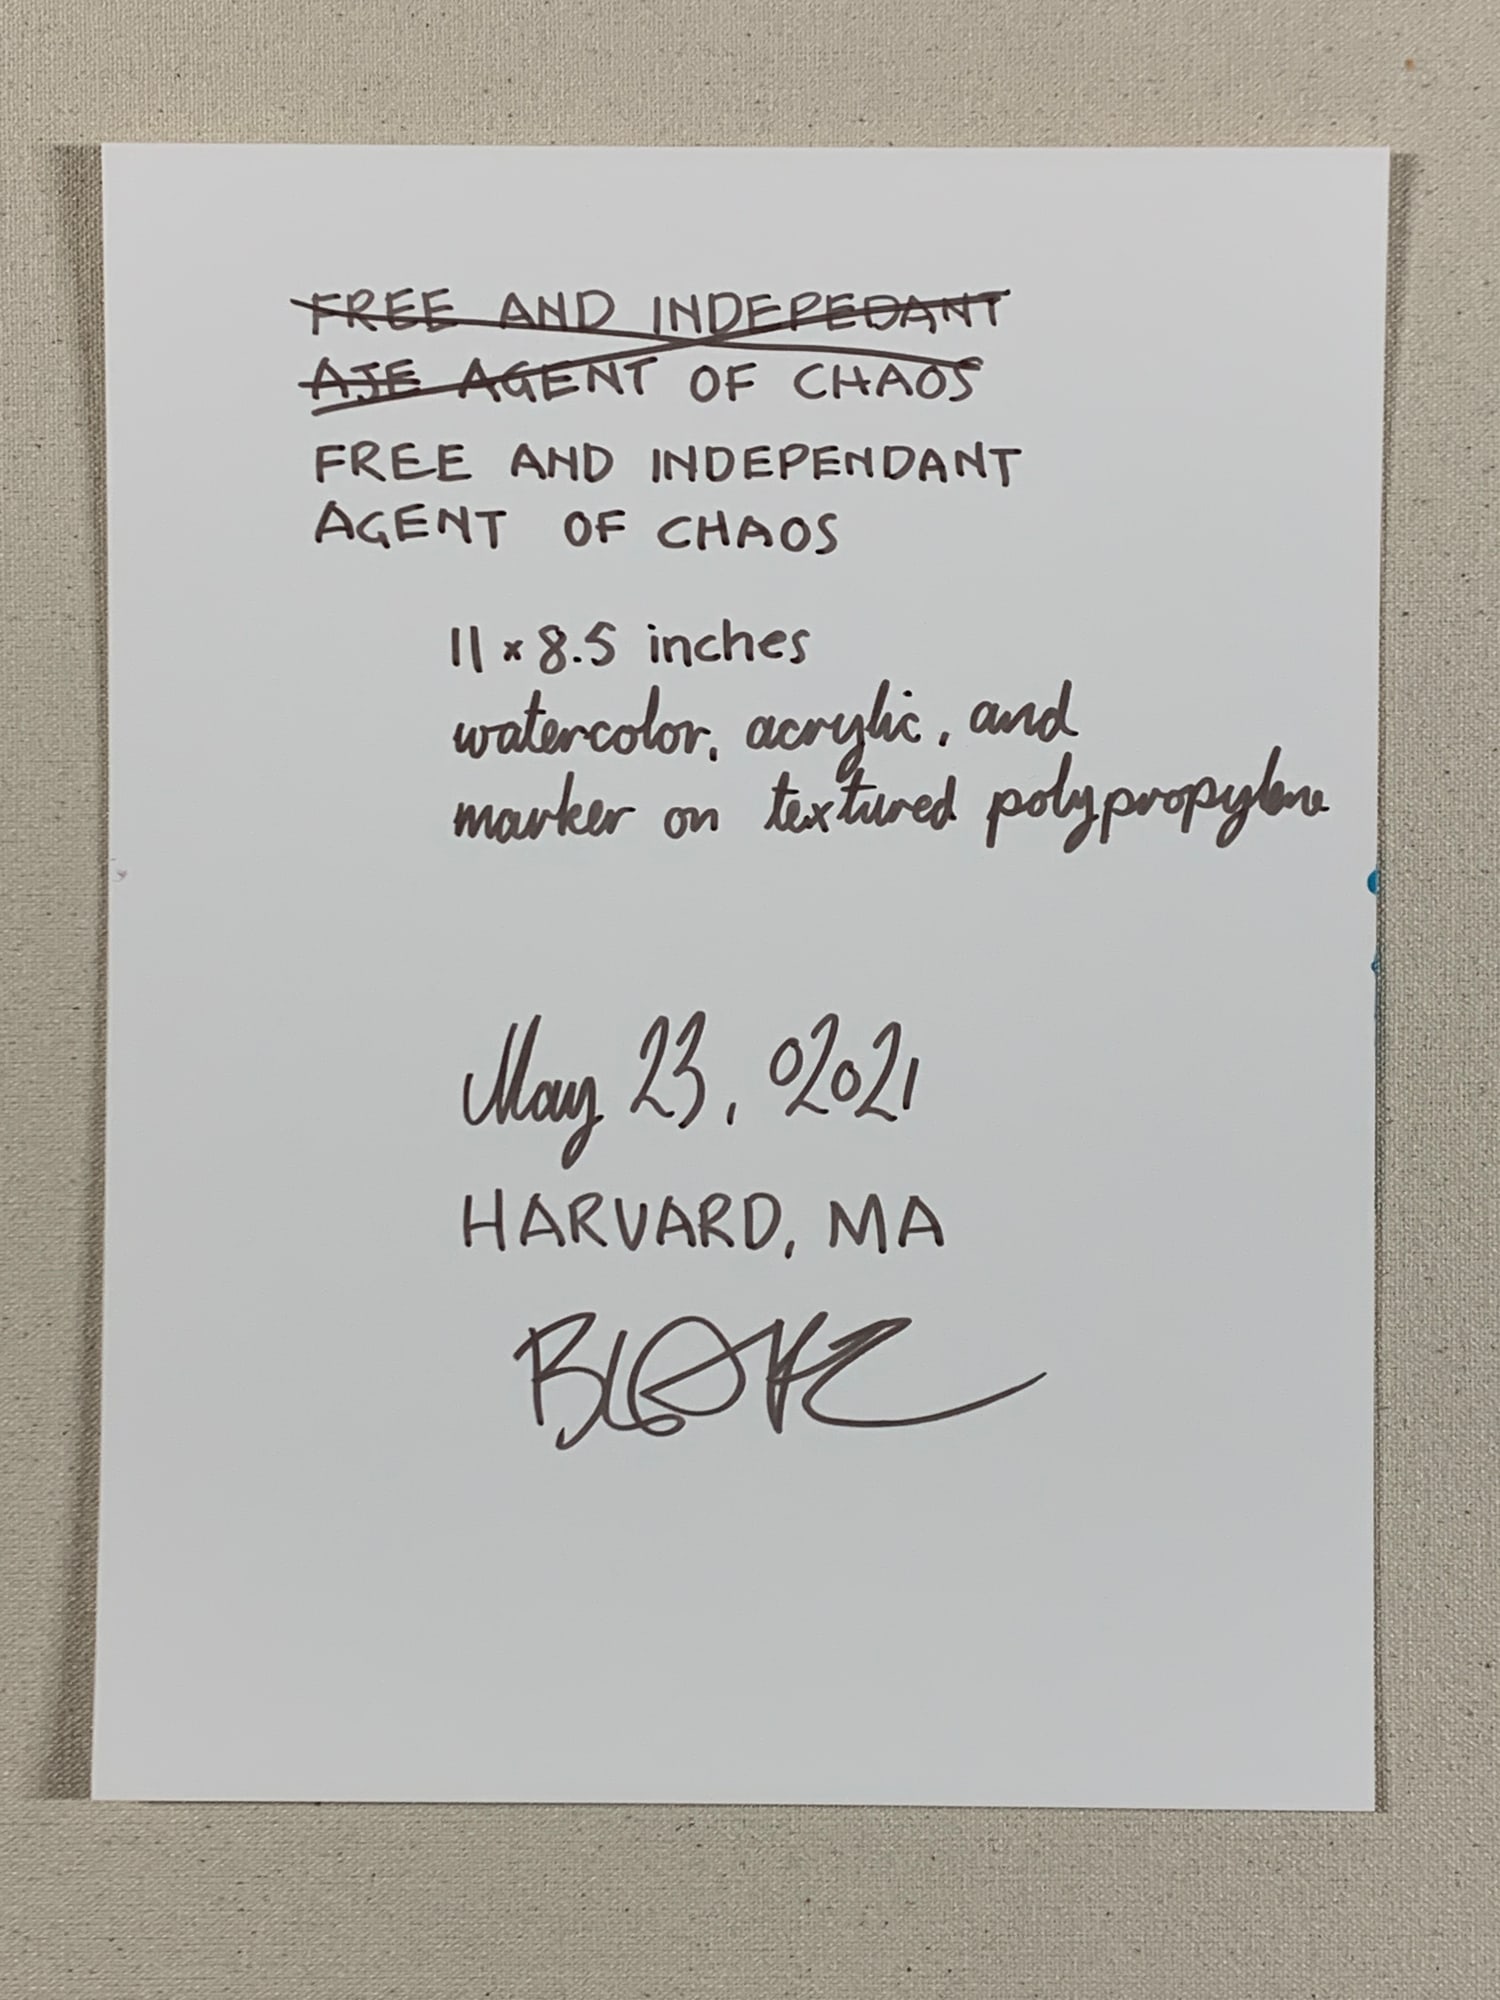 FREE AND INDEPEDANT
AJE AGENT OF CHAOS
FREE AND INDEPENDANT
AGENT OF CHAOS
11 × 8.5 inches
watercolor, acrylic, and
marker on textured polypropylene
May 23, 02021
HARVARD, MA